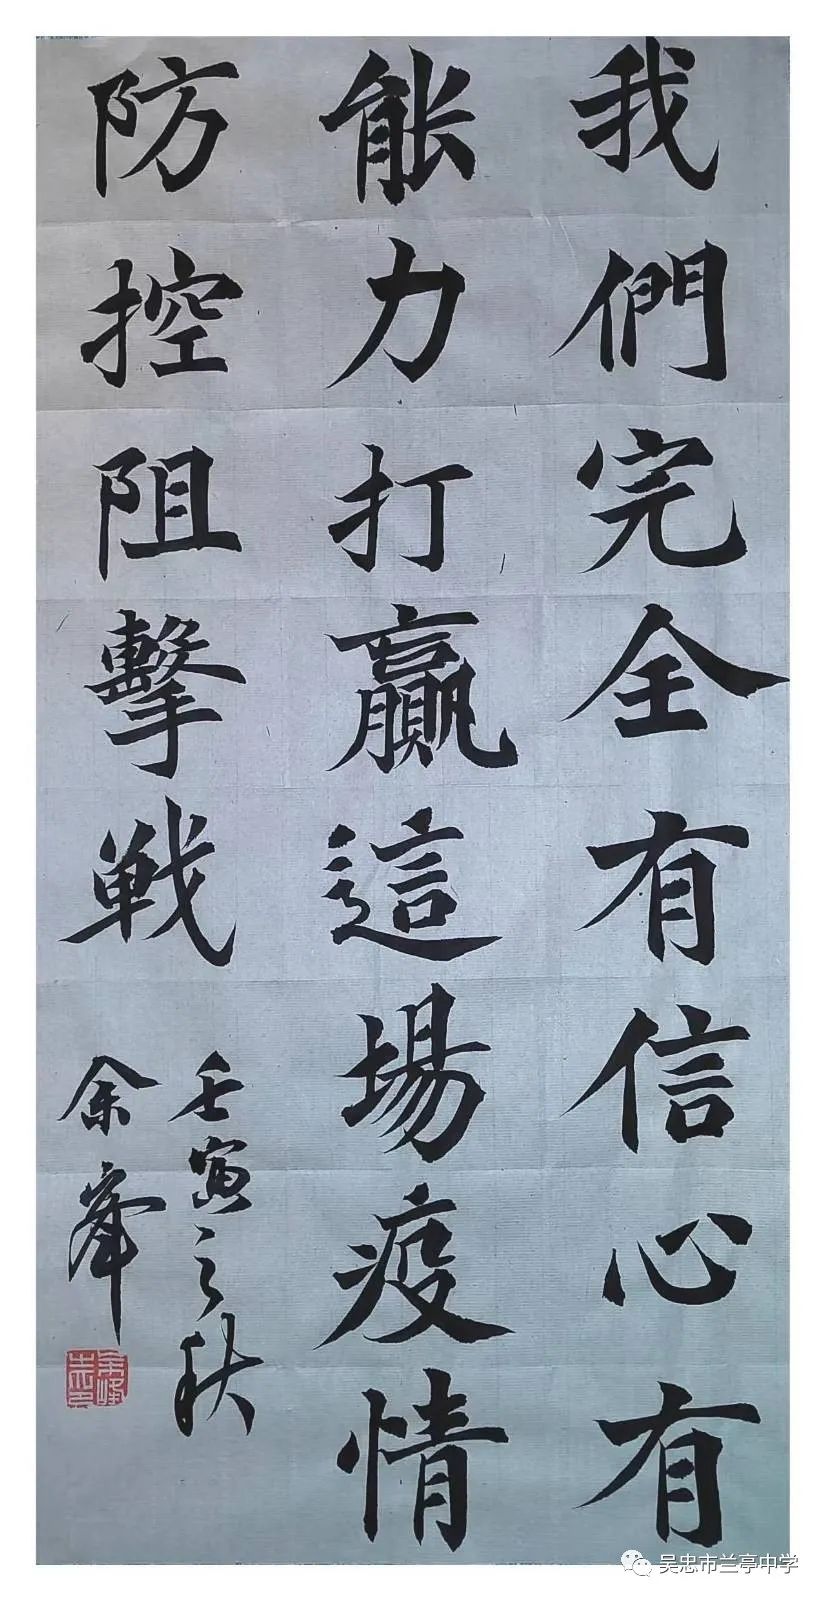 我們完全有信心有
能力打贏這場疫情
防控阻擊戦
壬寅之秋
余峯
吴忠市兰亭中学